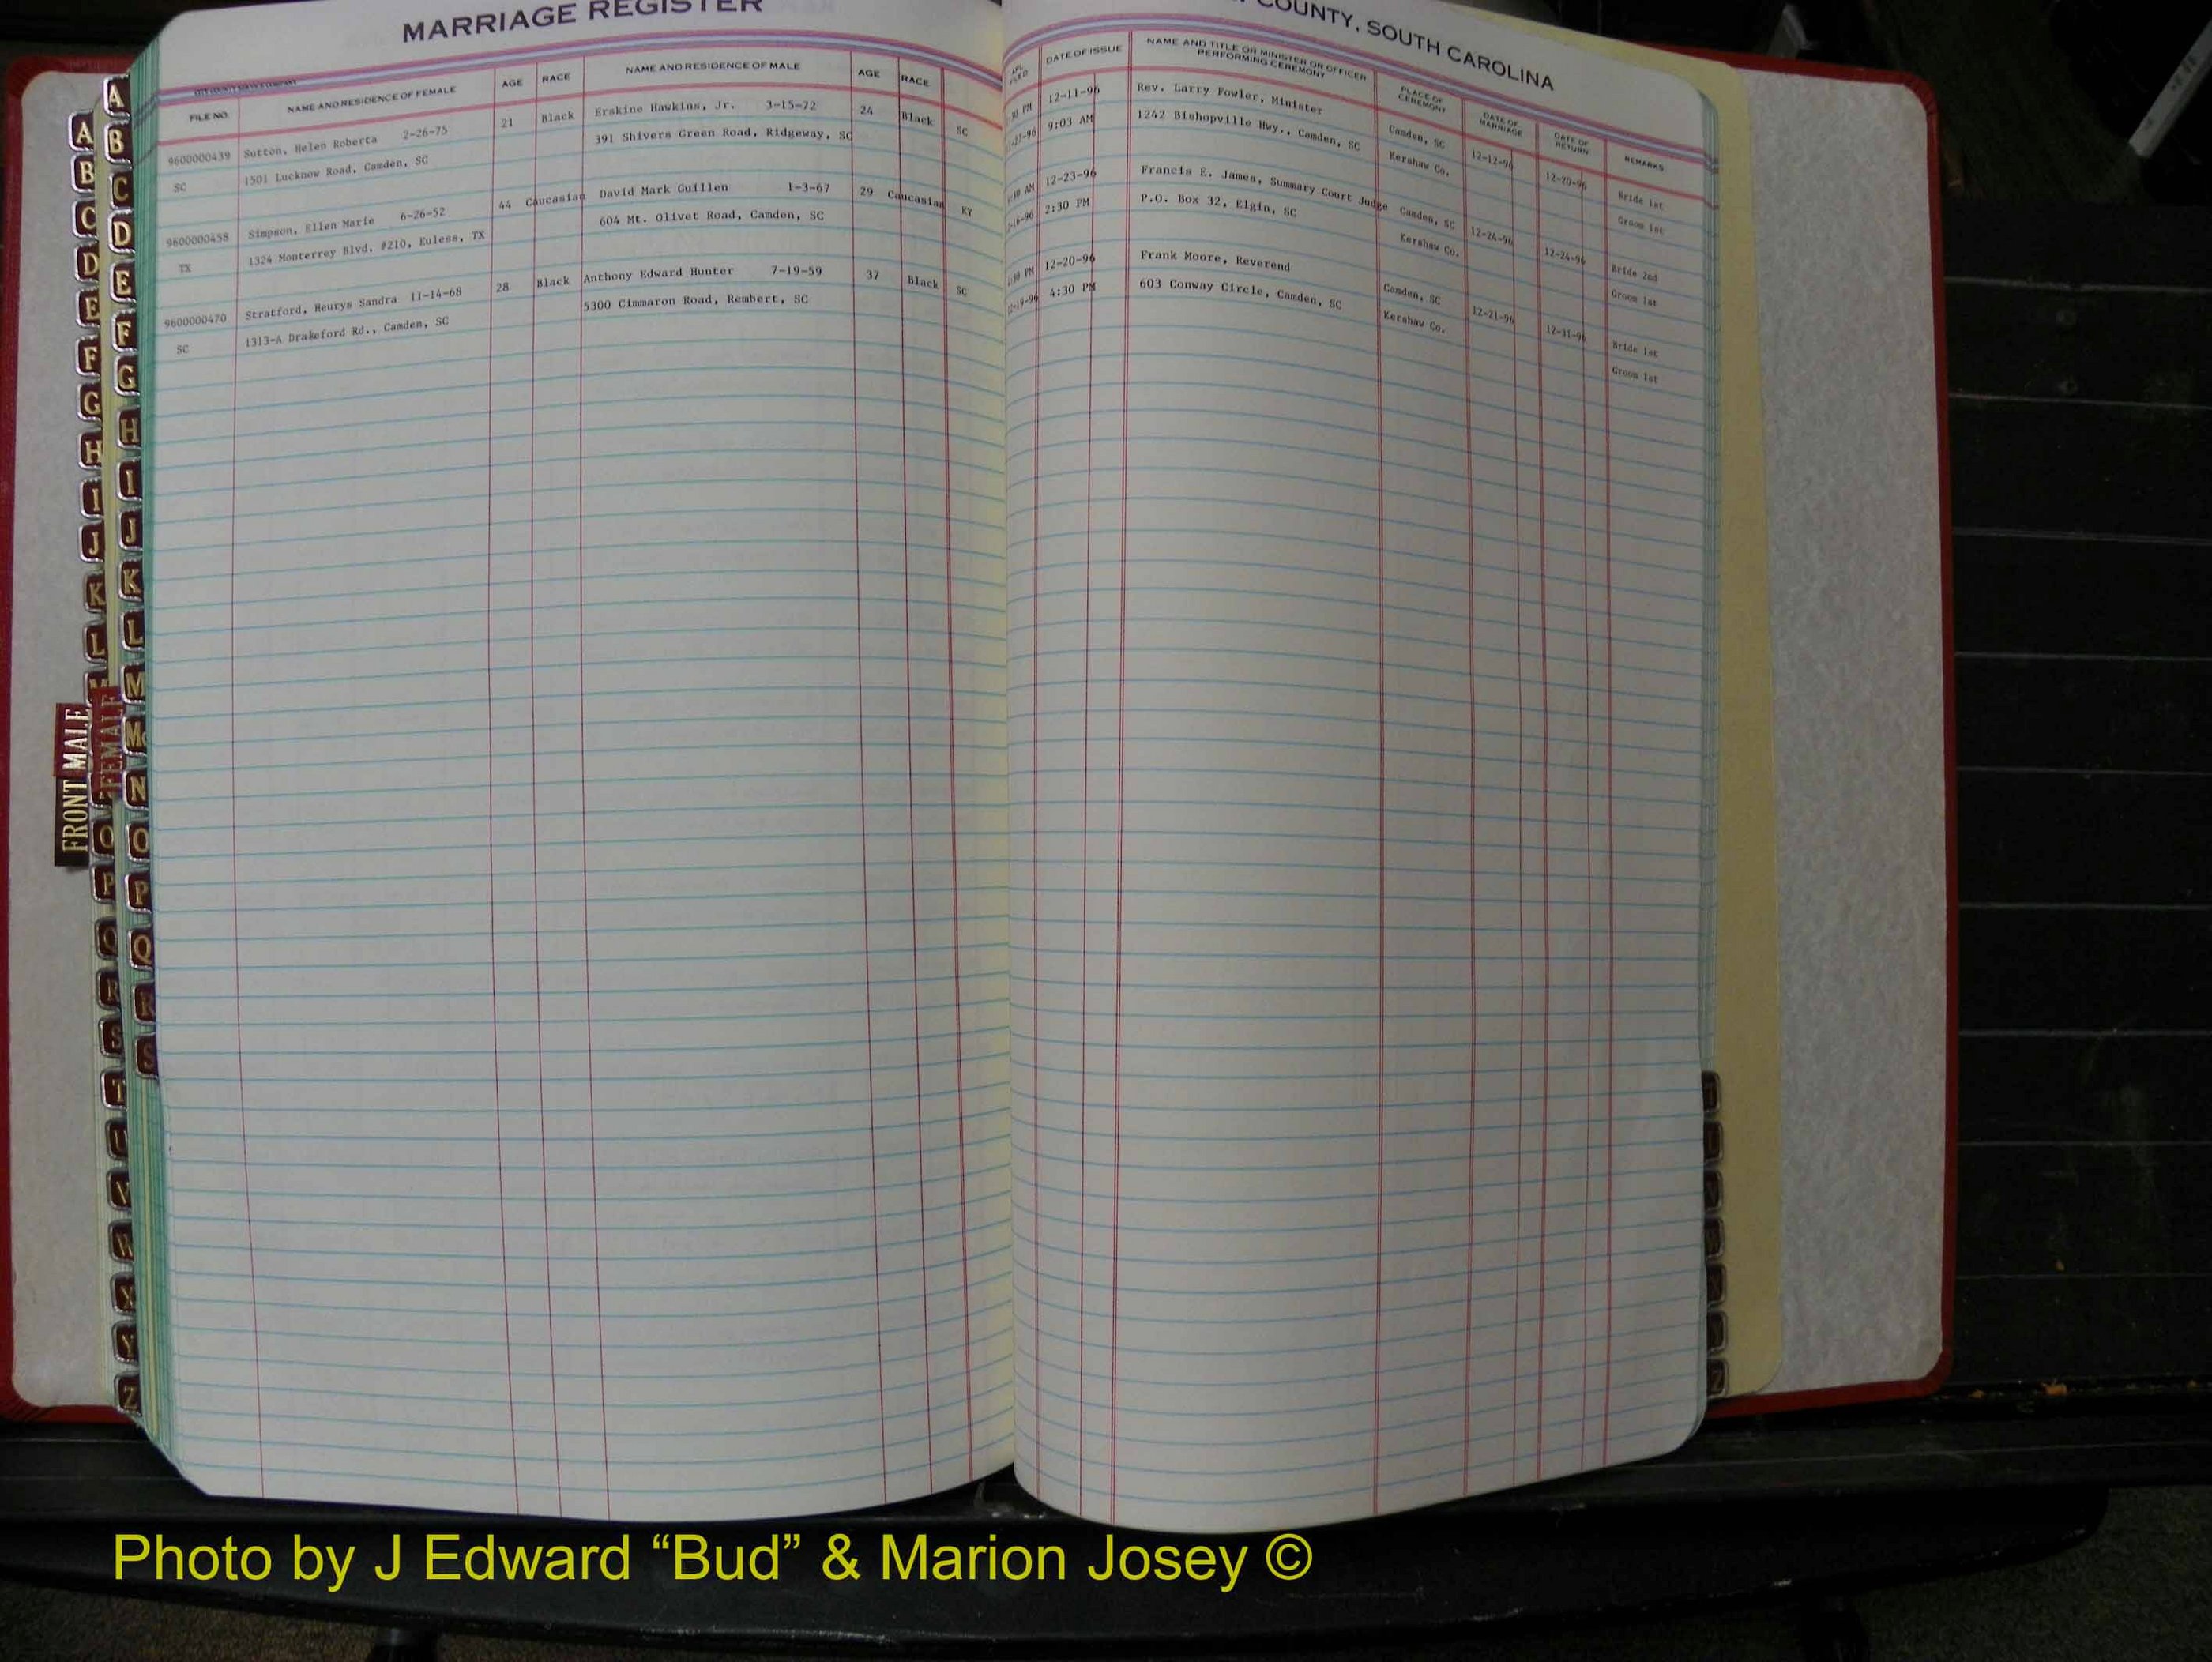 MARRIAGE REGISTER
COUNTY, SOUTH CAROLINA
FILE NO. NAME AND RESIDENCE OF FEMALE AGE RACE NAME AND RESIDENCE OF MALE AGE RACE
DATE OF ISSUE NAME AND TITLE OR MINISTER OR OFFICER PERFORMING CEREMONY PLACE OF CEREMONY DATE OF MARRIAGE DATE OF RETURN REMARKS
9600000439 Sutton, Helen Roberta 2-26-75 21 Black Erskine Hawkins, Jr. 3-15-72 24 Black SC
SC 1501 Lucknow Road, Camden, SC 391 Shivers Green Road, Ridgeway, SC
9600000458 Simpson, Ellen Marie 6-26-52 44 Caucasian David Mark Guillen 1-3-67 29 Caucasian KY
TX 1324 Monterrey Blvd. #210, Euless, TX 604 Mt. Olivet Road, Camden, SC
9600000470 Stratford, Heurys Sandra 11-14-68 28 Black Anthony Edward Hunter 7-19-59 37 Black SC
SC 1313-A Drakeford Rd., Camden, SC 5300 Cimmaron Road, Rembert, SC
PM 12-11-96 Rev. Larry Fowler, Minister Camden, SC 12-12-96 12-20-96 Bride 1st
9:03 AM 1242 Bishopville Hwy., Camden, SC Kershaw Co. Groom 1st
AM 12-23-96 Francis E. James, Summary Court Judge Camden, SC 12-24-96 12-24-96 Bride 2nd
2:30 PM P.O. Box 32, Elgin, SC Kershaw Co. Groom 1st
PM 12-20-96 Frank Moore, Reverend Camden, SC 12-21-96 12-31-96 Bride 1st
4:30 PM 603 Conway Circle, Camden, SC Kershaw Co. Groom 1st
A
B
C
D
E
F
G
H
I
J
K
L
O
P
Q
R
S
T
U
V
W
X
Y
Z
A
B
C
D
E
F
G
H
I
J
K
L
M
Mc
N
O
P
Q
R
S
FRONT MALE
FEMALE
Photo by J Edward “Bud” & Marion Josey ©